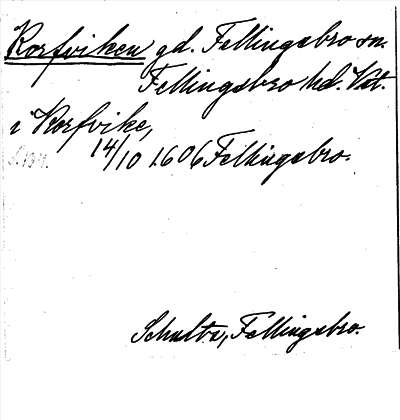 Korfviken gd. Fellingsbro sn.
Fellingsbro hd. Vst.
i Korfvike,
14/10 1606 Fellingsbro.
Schultz, Fellingsbro.